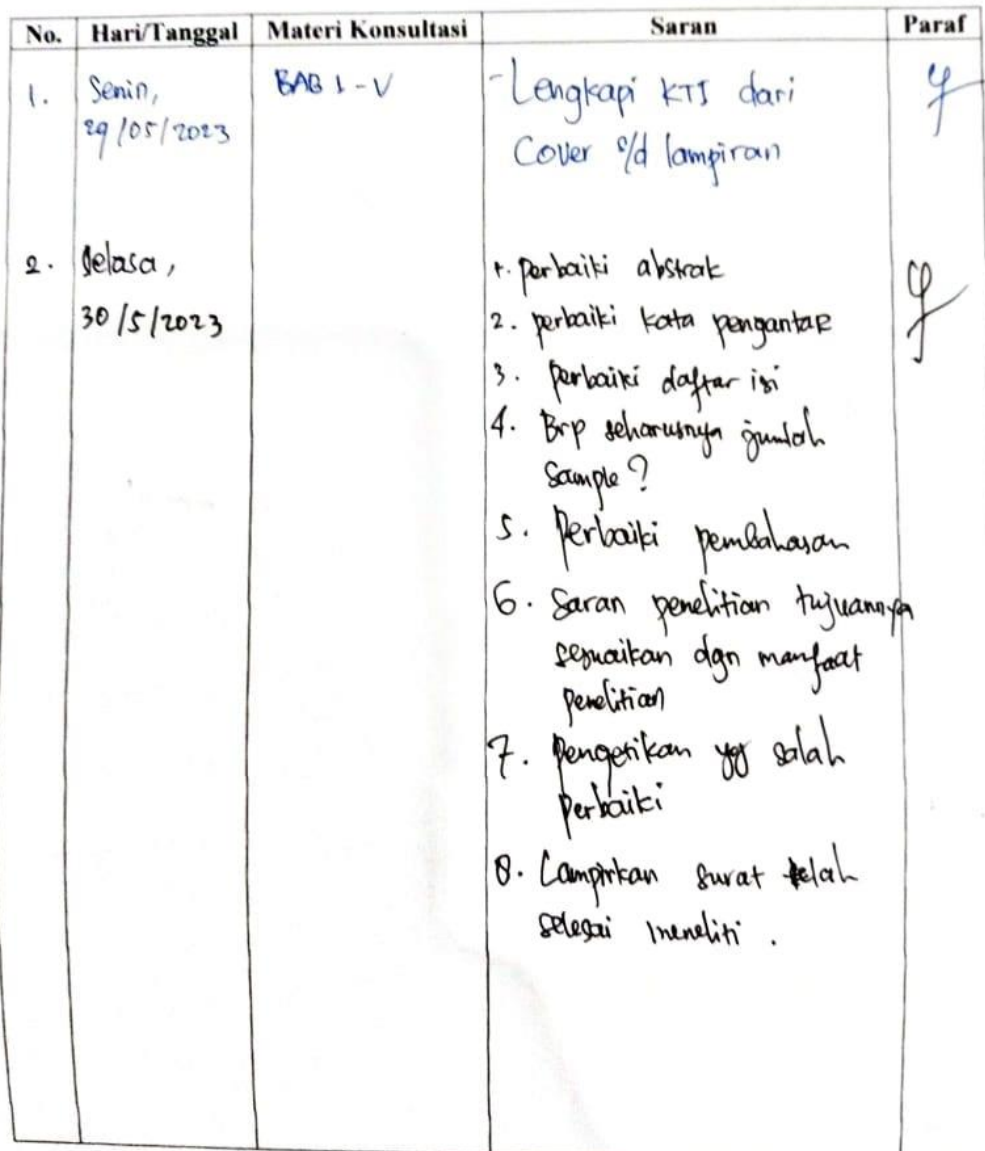 No. Hari/Tanggal Materi Konsultasi Saran Paraf
1. Senin, BAB I - V - Lengkapi KTI dari
29/05/2023 Cover s/d lampiran
2. Selasa, 1. perbaiki abstrak
30/5/2023 2. perbaiki kata pengantar
3. perbaiki daftar isi
4. Brp seharusnya jumlah
Sample?
5. Perbaiki pembahasan
6. Saran penelitian tujuannya
sesuaikan dgn manfaat
penelitian
7. Pengetikan yg salah
perbaiki
8. Lampirkan surat telah
selesai meneliti.